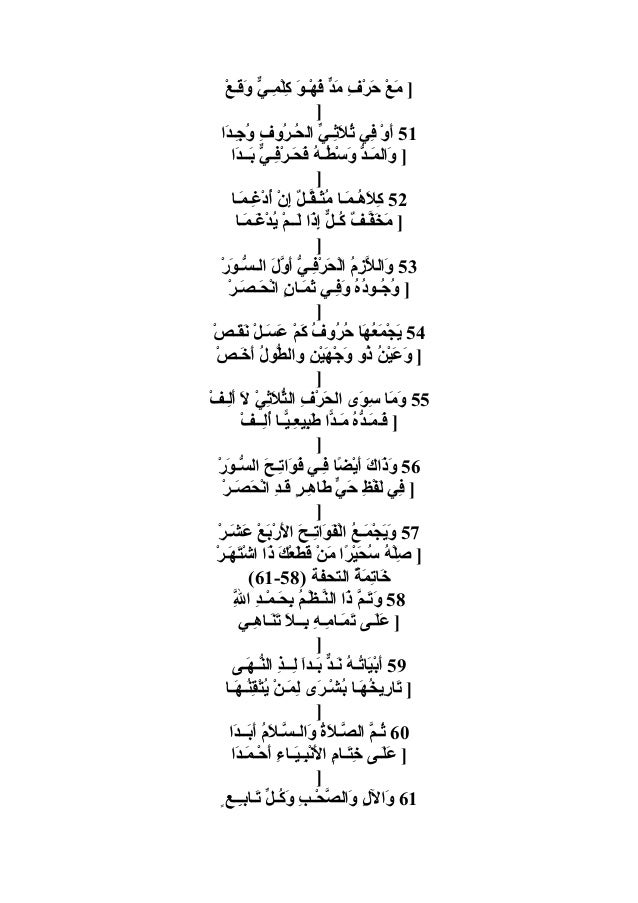 [ مَعْ حَرْفِ مَدٍّ فَهْـوَ كِلْمِـيٌّ وَقَـعْ
]
51 أَوْ فِي ثُلاَثِـيِّ الحُـرُوفِ وُجِـدَا
[ وَالمَـدُّ وَسْطُـهُ فَحَـرْفِـيٌّ بَــدَا
]
52 كِلاَهُـمَـا مُثَـقَّـلٌ إِنْ أُدْغِـمَـا
[ مَخَفَّـفٌ كُـلٌّ إِذَا لَــمْ يُدْغَـمَـا
]
53 وَاللاَّزِمُ الْحَرْفِـيُّ أَوَّلَ الـسُّـوَرْ
[ وُجُـودُهُ وَفِـي ثَمَـانٍ انْحَـصَـرْ
]
54 يَجْمَعُهَا حُرُوفُ كَمْ عَسَـلْ نَقَـصْ
[ وَعَيْنُ ذُو وَجْهَيْنِ والطُّولُ أَخَـصْ
]
55 وَمَا سِوَى الحَرْفِ الثُّلاَثِيْ لاَ أَلِـفْ
[ فَـمَـدُّهُ مَـدًّا طَبِيعِـيًّـا أُلِــفْ
]
56 وَذَاكَ أَيْضًا فِـي فَوَاتِـحَ السُّـوَرْ
[ فِي لَفْظِ حَيٍّ طَاهِـرٍ قَـدِ انْحَصَـرْ
]
57 وَيَجْمَـعُ الْفَوَاتِـحَ الأَرْبَـعْ عَشَـرْ
[ صِلْهُ سُحَيْرًا مَنْ قَطَعْكَ ذَا اشْتَـهَـرْ
خَاتِمَةُ التحفة (58-61)
58 وَتَـمَّ ذَا النَّـظْـمُ بِحَـمْـدِ اللَّهِ
[ عَلَـى تَمَـامِـهِ بِــلاَ تَنَـاهِـي
]
59 أَبْيَاتُـهُ نَـدٌّ بَـدا لِــذِ النُّـهَـى
[ تَارِيخُهَـا بُشْـرَى لِمَـنْ يُتْقِنُـهَـا
]
60 ثُـمَّ الصَّـلاَةُ وَالـسَّـلاَمُ أَبَــدَا
[ عَلَـى خِتَـامِ الأَنْبِـيَـاءِ أَحْـمَـدَا
]
61 وَالآلِ وَالصَّحْـبِ وَكُـلِّ تَـابِــعٍ